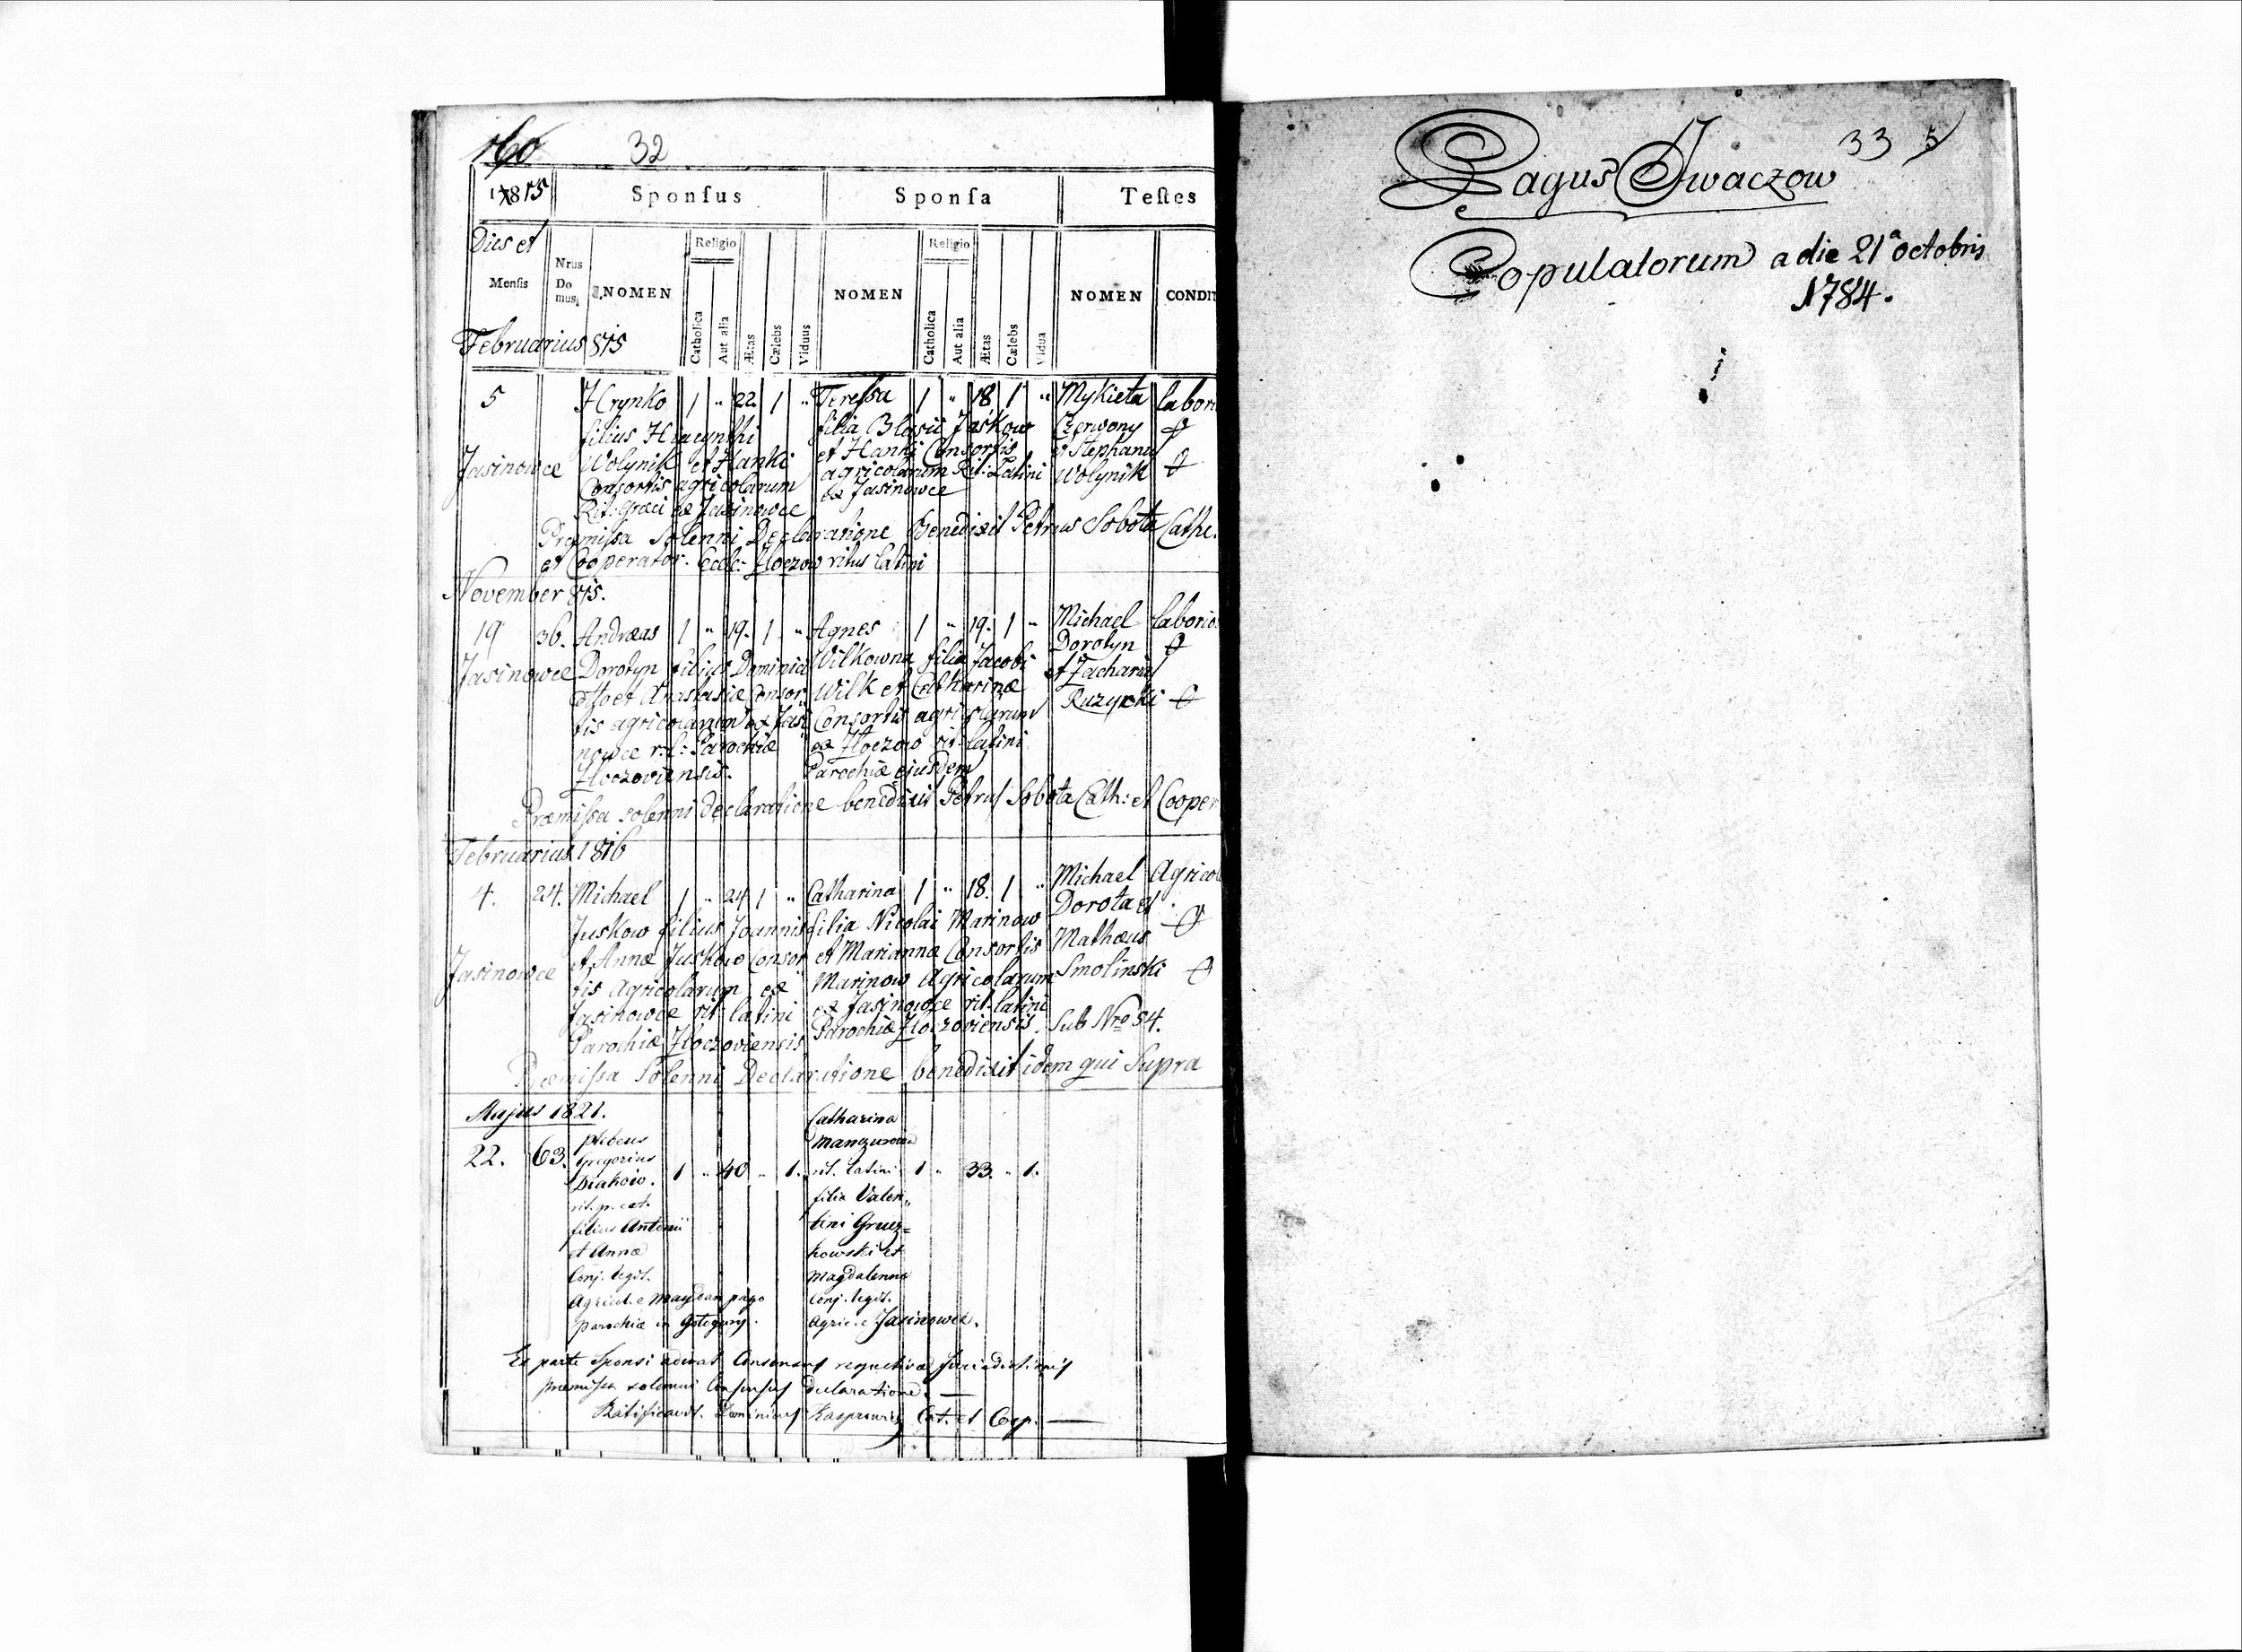 160 32
1815 Sponsus Sponsa Testes
Dies et
Mensis Nrus Domus NOMEN Religio Catholica Aut alia Ætas Cælebs Viduus NOMEN Religio Catholica Aut alia Ætas Cælebs Vidua NOMEN CONDIT
Februarius 815
5 Hrynko 1 " 22 1 " Teressa 1 " 18 1 " Mykieta labori
filius Hiacynthi filia Blasii Jaśkow Czerwony
Jasinowce Wolynik et Hanki et Hanki Consortis et Stephanus
Consortis agricolarum agricolarum Rit: Latini Wolynik
Rit: Græci ex Jasinowce ex Jasinowce
Præmissa Solenni Declaratione Benedixit Petrus Sobota Cathe.
et Cooperator. Eccl: Zloczow ritus latini
November 815.
19 36. Andræas 1 " 19. 1 " Agnes 1 " 19. 1 " Michael laborio
Jasinowce Dorotyn filius Dominici Wilkowna filia Jacobi Dorotyn
et Anastasiæ Consor Wilk et Catharinæ et Zacharius
tis agricolarum ex Jasi Consortis agricolarum Ruzycki
nowce r: l: Parochiæ ex Zloczow rit: latini
Zloczoviensis. Parochiæ ejusdem
Præmissa solenni declaratione benedixit Petrus Sobota Cath: et Cooper
Februarius 1816
4. 24. Michael 1 " 24 1 " Catharina 1 " 18. 1 " Michael Agricol
Juskow filius Joannis filia Nicolai Marinow Dorota et
et Annæ Juskow Consor et Mariannæ Consortis Mathæus
Jasinowce tis Agricolarum ex Marinow Agricolarum Smolinski
Jasinowce rit: latini ex Jasinowce rit: latini
Parochiæ Zloczoviensis Parochiæ Zloczoviensis. Sub Nro 54.
Præmissa Solenni Declaratione benedixit idem qui Supra
Majus 1821.
22. 63. plebeus Catharina
Gregorius
Diakow. 1 " 40 " 1. rit. latini 1 " 33. " 1.
rit. gr. cat. filia Valen
filius Antonii tini Grucz=
et Annæ kowski et
Conj. legit. Magdalennæ
Agricol. e Maydan pago Conj. legit.
parochiæ in Gologury. Agric. e Jasinowce.
Ex parte Sponsi aderat Consensus respectivæ Jurisdictionis
præmissa solenni Consensus declaratione. —
Ratificavit. Dominicus Kasprowicz Cat. et Coop. —
33 5
Pagus Jwaczow
Copulatorum a die 21ª octobris
1784.